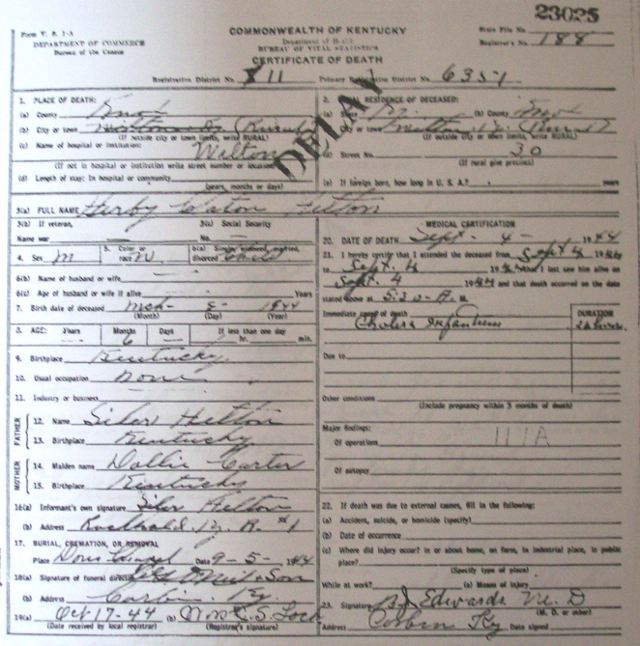 23025
Form V. S. 1-A
DEPARTMENT OF COMMERCE
Bureau of the Census
COMMONWEALTH OF KENTUCKY
Department of Health
BUREAU OF VITAL STATISTICS
CERTIFICATE OF DEATH
State File No.
Registrar's No. 188
Registration District No. 811 Primary Registration District No. 6351
DELAY
1. PLACE OF DEATH:
(a) County Knox
(b) City or town (Rural)
(If outside city or town limits, write RURAL)
(c) Name of hospital or institution:
Wilton
(If not in hospital or institution write street number or location)
(d) Length of stay: In hospital or community
(years, months or days)
2. RESIDENCE OF DECEASED:
(a) State Ky. (b) County Knox
(b) City or town Wilton Ky. (Rural)
(If outside city or town limits, write RURAL)
(d) Street No. 30
(If rural give precinct)
(e) If foreign born, how long in U. S. A.? years
3(a) FULL NAME Herby Helton
3(b) If veteran, 3(c) Social Security
Name war No.
4. Sex M 5. Color or race W 6(a) Single, widowed, married, divorced Child
6(b) Name of husband or wife
6(c) Age of husband or wife if alive Years
7. Birth date of deceased Mch- 8- 1944
(Month) (Day) (Year)
8. AGE: Years Months Days If less than one day
6 hr. min.
9. Birthplace Kentucky
10. Usual occupation none
11. Industry or business
FATHER
12. Name Siler Helton
13. Birthplace Kentucky
MOTHER
14. Maiden name Dollie Carter
15. Birthplace Kentucky
16(a) Informant's own signature Siler Helton
(b) Address Ky. R #1
17. BURIAL, CREMATION, OR REMOVAL
Place Date 9-5- 1944
18(a) Signature of funeral director O'Neil & Son
(b) Address Corbin, Ky.
19(a) Oct 17-44 (b) Mrs. C. S. Lock
(Date received by local registrar) (Registrar's signature)
MEDICAL CERTIFICATION
20. DATE OF DEATH Sept- 4- 1944
21. I hereby certify that I attended the deceased from Sept 4 1944
to Sept. 4 1944 that I last saw him alive on
Sept. 4 1944 and that death occurred on the date
stated above at 5:30 A. M.
Immediate cause of death DURATION
Cholera Infantum
Due to
Other conditions
(Include pregnancy within 3 months of death)
Major findings:
Of operations 117A
Of autopsy
22. If death was due to external causes, fill in the following:
(a) Accident, suicide, or homicide (specify)
(b) Date of occurrence
(c) Where did injury occur? in or about home, on farm, in industrial place, in public
place?
(Specify type of place)
While at work? (e) Means of injury
23. Signature B.J. Edwards M. D
(M. D. or other)
Address Corbin Ky Date signed